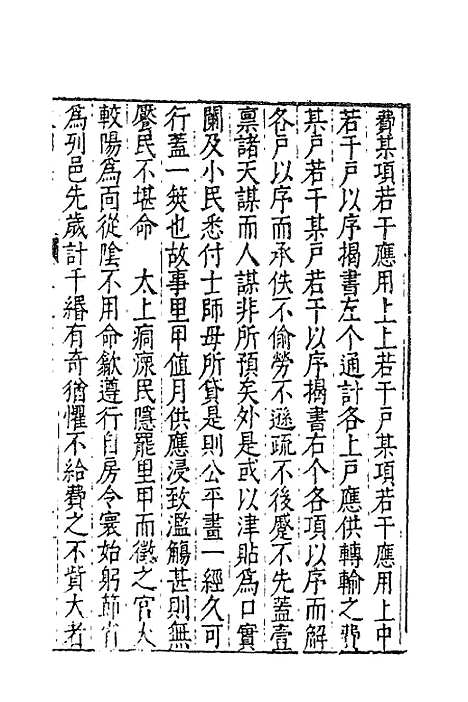 費某項若干應用上上若干戶某項若干應用上中
若干戶以序揭書左个通計各上戶應供轉輸之費
某戶若干某戶若干以序揭書右个各項以序而解
各戶以序而承佚不偷勞不遜疏不後蹙不先蓋壹
稟諸天謀而人謀非所預矣外是或以津貼爲口實
闌及小民悉付士師毋所貸是則公平畫一經久可
行蓋一筴也故事里甲值月供應浸致濫觴甚則無
饜民不堪命　太上痌瘝民隱罷里甲而徵之官大
較陽爲而從陰不用命歙遵行自房令寰始躬節省
爲列邑先歲計千緡有奇猶懼不給費之不貲大者